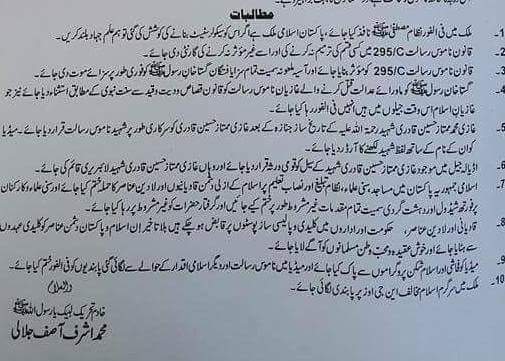 مطالبات
1۔ ملک میں فی الفور نظام مصطفیٰ ﷺ نافذ کیا جائے، پاکستان اسلامی ملک ہے اگر اس کو سیکولر سٹیٹ بنانے کی کوشش کی گئی تو ہم علم جہاد بلند کریں۔
2۔ قانون ناموس رسالت 295/C میں کسی قسم کی ترمیم نہ کرنے کی اور اسے غیر مؤثر نہ کرنے کی گارنٹی دی جائے۔
3۔ قانون ناموس رسالت 295/C کو مؤثر بنایا جائے اور آسیہ ملعونہ سمیت تمام سزا یافتگان گستاخان رسول ﷺ کو فوری طور پر سزائے موت دی جائے۔
4۔ گستاخ رسول ﷺ کو ماورائے عدالت قتل کرنے والے غازیان ناموس رسالت کو قانون قصاص ودیت وقید سے سنت نبوی کے مطابق استثناء دیا جائے نیز جو
غازیان اسلام اس وقت جیلوں میں ہیں انہیں فی الفور رہا کیا جائے۔
5۔ غازی محمد ممتاز حسین قادری شہید رحمۃ اللہ علیہ کے تاریخ ساز جنازہ کے بعد غازی ممتاز حسین قادری کو سرکاری طور پر شہید ناموس رسالت قرار دیا جائے۔ میڈیا
کو ان کے نام کے ساتھ لفظ شہید لکھنے کا آرڈر دیا جائے۔
6۔ اڈیالہ جیل میں موجود غازی ممتاز حسین قادری شہید کے سیل کو قومی ورثہ قرار دیا جائے اور وہاں غازی ممتاز حسین قادری شہید لائبریری قائم کی جائے۔
7۔ اسلامی جمہوریہ پاکستان میں مساجد، سنی علماء، نظام تبلیغ اور نصاب تعلیم پر اسلام کے ازلی دشمن قادیانیوں اور لادین عناصر کا حملہ ختم کیا جائے اور سنی علماء وکارکنان
پر فورتھ شیڈول اور دہشت گردی سمیت تمام مقدمات غیر مشروط طور پر ختم کیے جائیں اور گرفتار حضرات کو غیر مشروط پر رہا کیا جائے۔
8۔ قادیانی اور لادین عناصر، حکومت اور اداروں میں کلیدی و پالیسی ساز پوسٹوں پر قابض ہو چکے ہیں بلا تاخیر ان اسلام وپاکستان دشمن عناصر کو کلیدی عہدوں
سے ہٹایا جائے اور خوش عقیدہ ومحب وطن مسلمانوں کو آگے لایا جائے۔
9۔ میڈیا کو فحاشی اور اسلام شکن پروگراموں سے پاک کیا جائے اور میڈیا میں ناموس رسالت اور دیگر اسلامی اقدار کے حوالے سے لگائی گئی پابندیوں کو فی الفور ختم کیا جائے۔
10۔ ملک میں سرگرم اسلام مخالف این جی اوز پر پابندی لگائی جائے۔
والسلام
خادم تحریک لبیک یا رسول اللہ ﷺ
محمد اشرف آصف جلالی